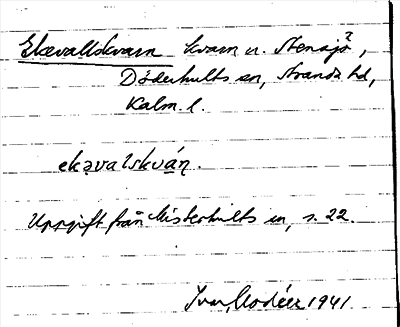 Ekevallskvarn kvarn u. Stensjö,
Döderhults sn, Stranda hd,
Kalm. l.
ekavalskván.
Uppgift från Misterhults sn, s. 22.
Ivar Modéer 1941